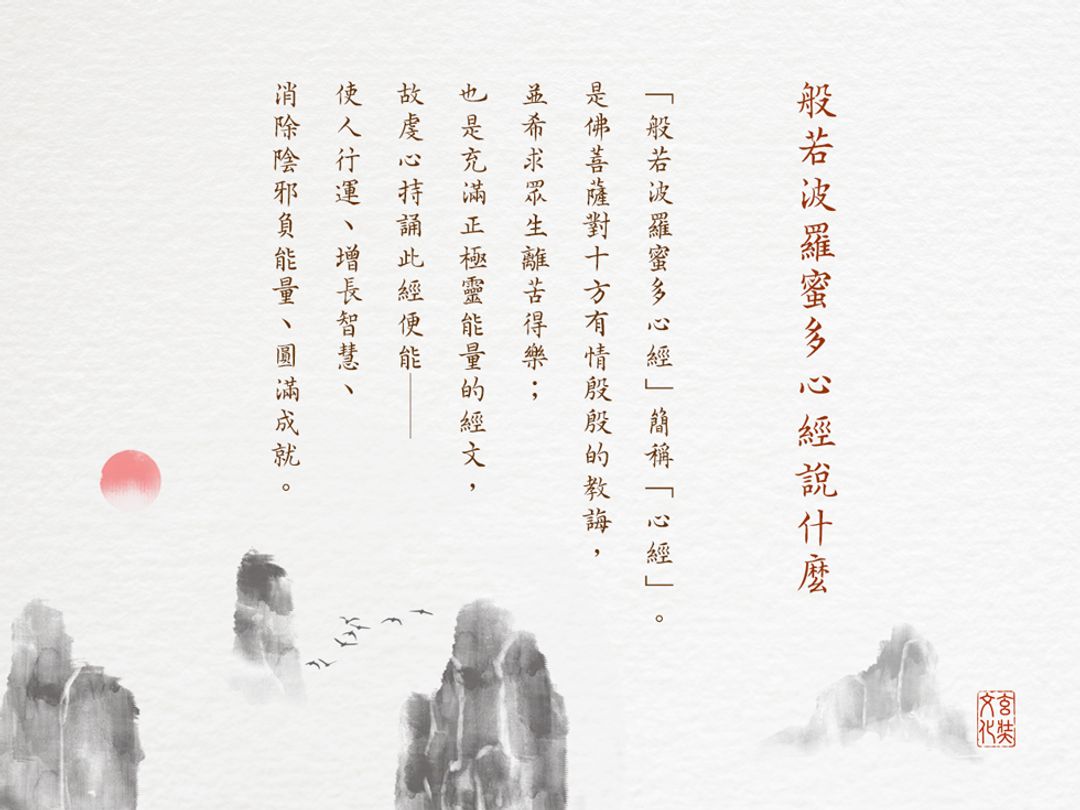 般若波羅蜜多心經說什麼
「般若波羅蜜多心經」簡稱「心經」。
是佛菩薩對十方有情殷殷的教誨，
並希求眾生離苦得樂；
也是充滿正極靈能量的經文，
故虔心持誦此經便能——
使人行運、增長智慧、
消除陰邪負能量、圓滿成就。
玄奘文化